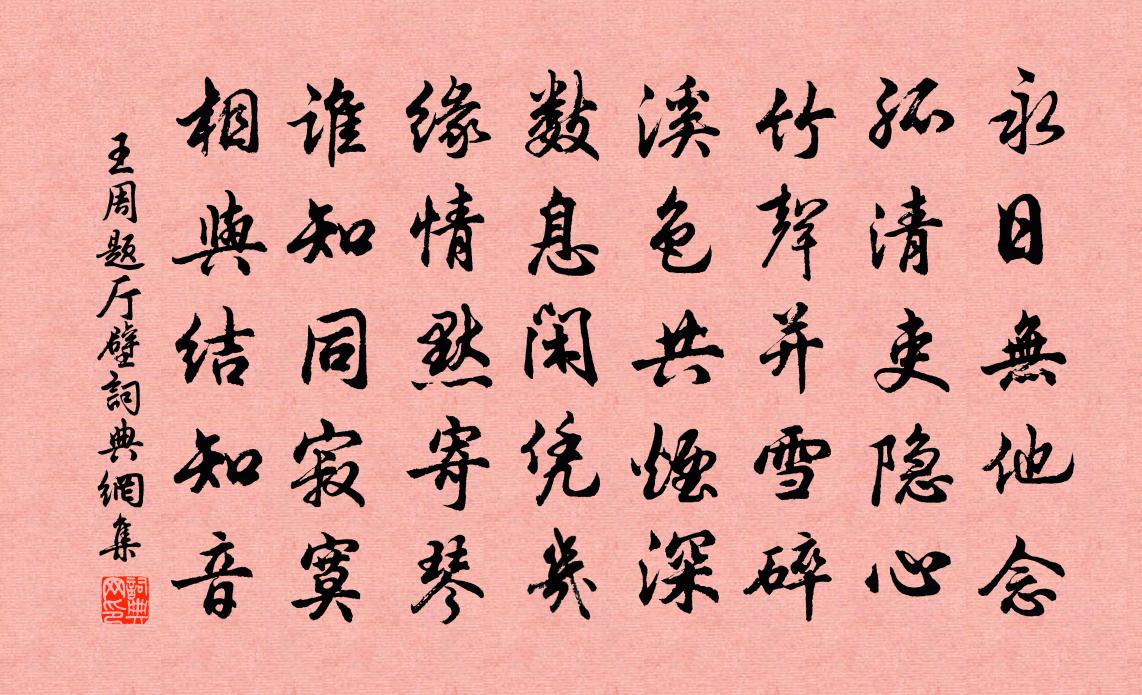 永日無他念
孤清吏隐心
竹聲并雪碎
溪色共煙深
數息閑凭幾
緣情默寄琴
誰知同寂寞
相與結知音
王周题厅壁詞典網集
詞典網印